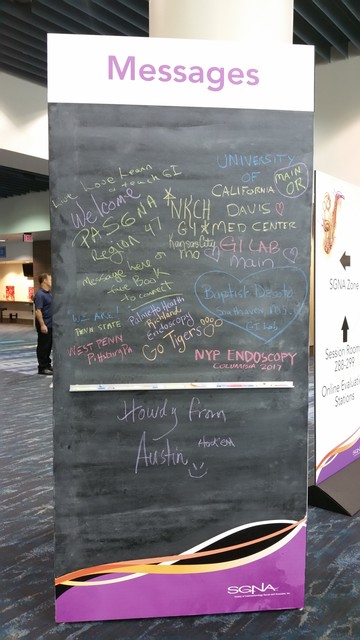 Messages
Live Love Learn
Teach GI
Welcome
PASGNA
Region 47
Message here or
Live Book
to connect
NKCH
G4
Kansas City
Mo
UNIVERSITY
OF
CALIFORNIA
DAVIS
MED CENTER
GI LAB
Main
MAIN
OR
Baptist Desoto
GI Lab
PENN STATE
WEST PENN
Pittsburgh Pa
Palmetto Health
Richland
Endoscopy
Go Tigers
NYP ENDOSCOPY
COLUMBIA 2017
Howdy from
Austin
SGNA
SGNA Zone
Session Room
288-299
Online Evaluation
Stations